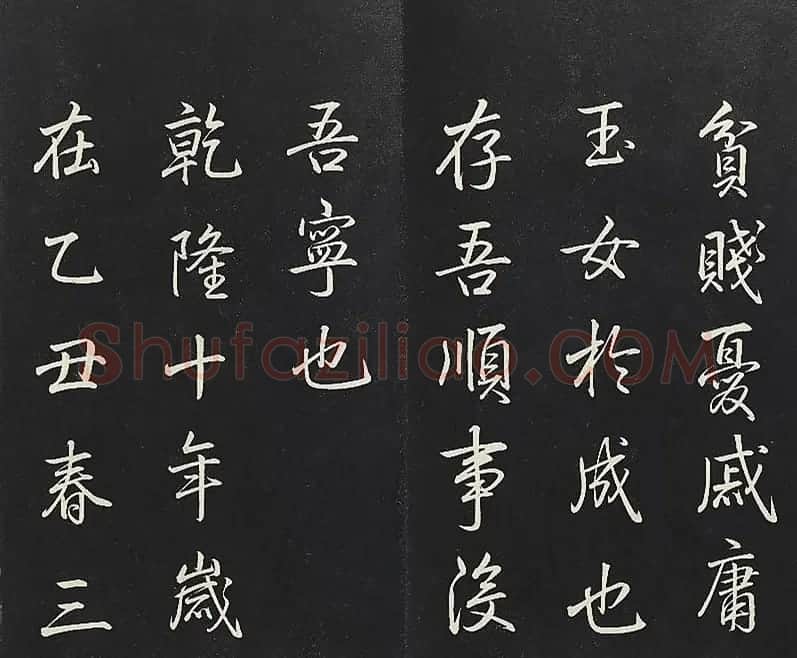 貧賤憂戚庸
玉女於成也
存吾順事沒
吾寧也
乾隆十年歲
在乙丑春三
Shufaziliao.COM